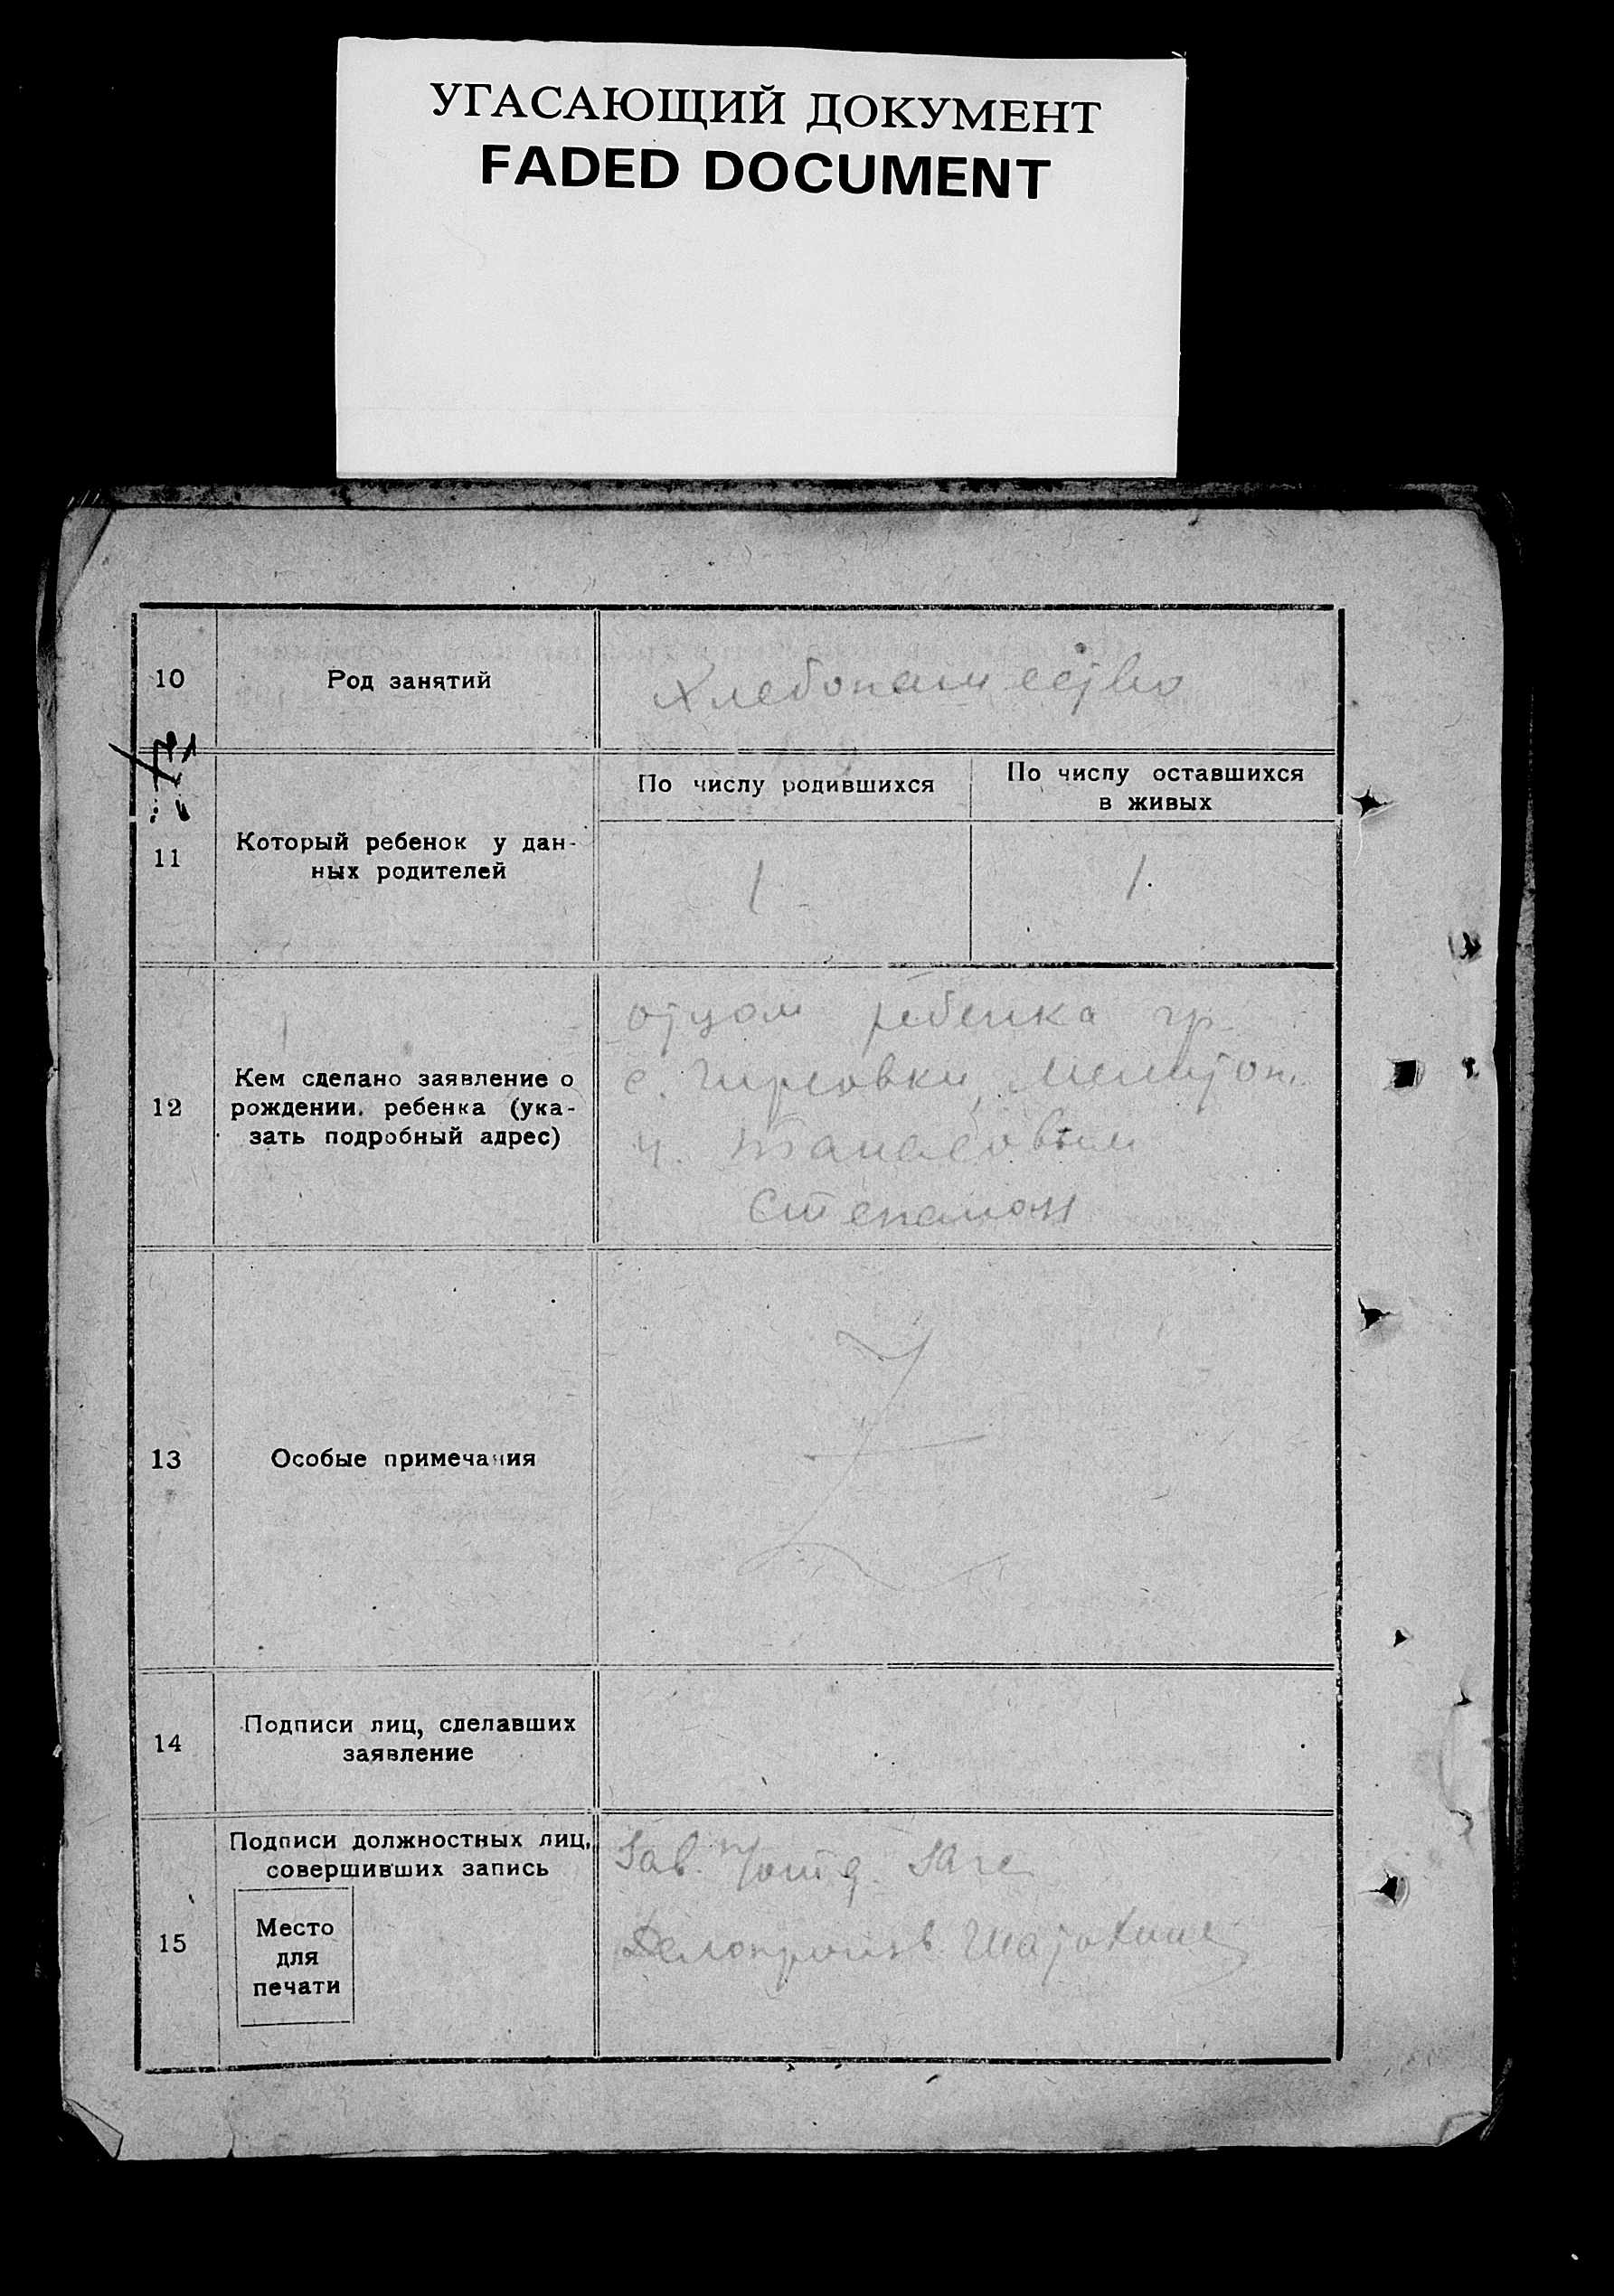 УГАСАЮЩИЙ ДОКУМЕНТ
FADED DOCUMENT
10
Род занятий
Хлебопашество
11
Который ребенок у дан-
ных родителей
По числу родившихся
По числу оставшихся
в живых
1
1.
12
Кем сделано заявление о
рождении. ребенка (ука-
зать подробный адрес)
отцом ребенка гр
с.
Степаном
13
Особые примечания
14
Подписи лиц, сделавших
заявление
15
Подписи должностных лиц,
совершивших запись
Место
для
печати
Зав.
Делопроизв.